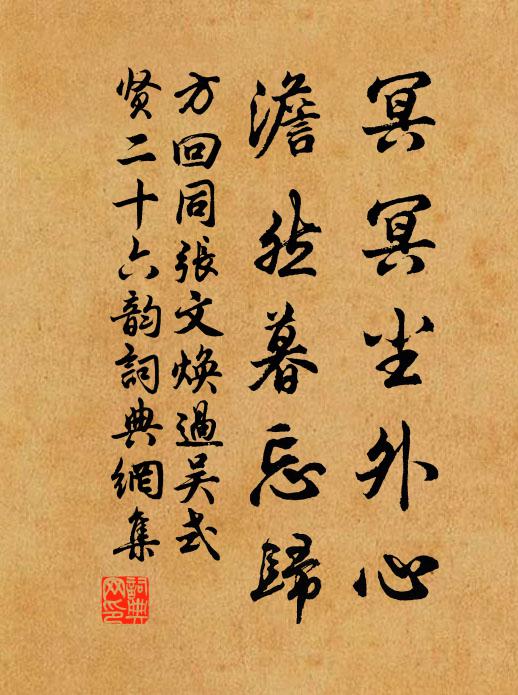 冥冥尘外心
澹然暮忘歸
方回同張文焕過吴式
贤二十六韵詞典網集
詞典網印